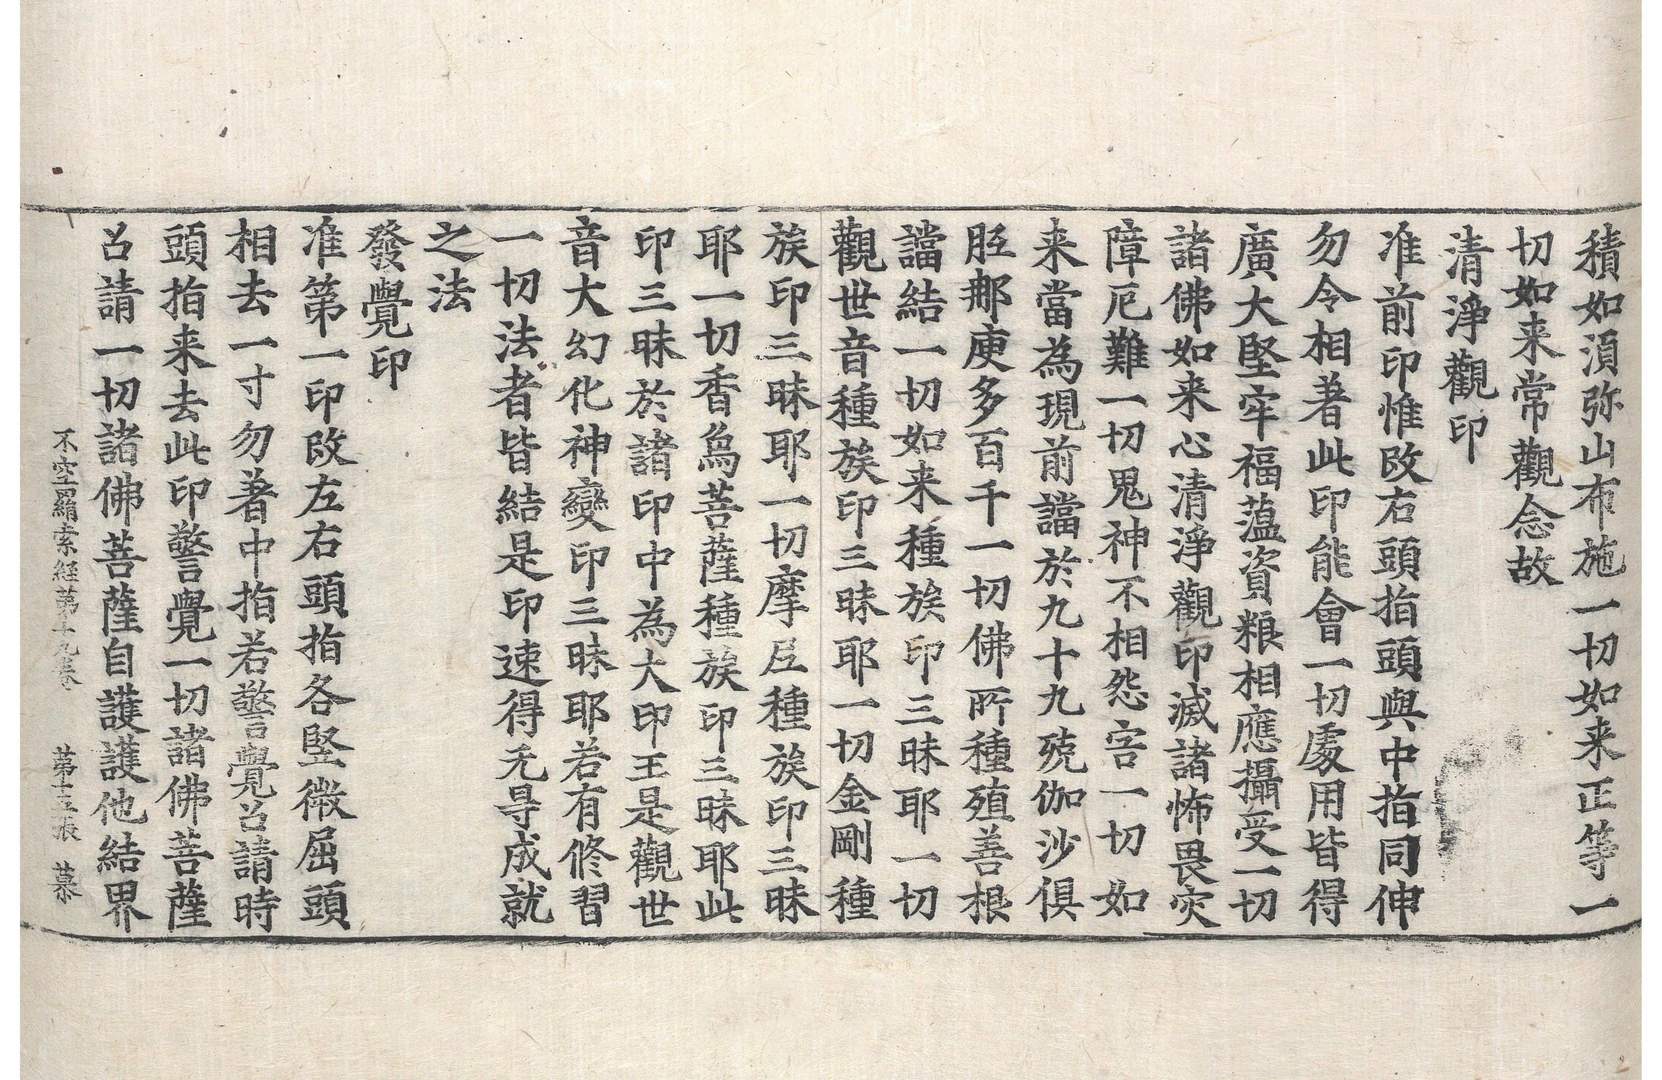 積如湏弥山布施一切如来正等一
切如来常觀念故
清淨觀印
准前印惟改右頭指頭與中指同伸
勿令相著此印能會一切處用皆得
廣大堅牢福薀資粮相應攝受一切
諸佛如来心清淨觀印滅諸怖畏灾
障厄難一切鬼神不相怨害一切如
来當為現前譡於九十九殑伽沙俱
胝那庾多百千一切佛所種殖善根
譡結一切如来種族印三昧耶一切
觀世音種族印三昧耶一切金剛種
族印三昧耶一切摩尼種族印三昧
耶一切香爲菩薩種族印三昧耶此
印三昧於諸印中為大印王是觀世
音大幻化神變印三昧耶若有修習
一切法者皆結是印速得无㝵成就
之法
發覺印
准第一印改左右頭指各竪微屈頭
相去一寸勿著中指若警覺召請時
頭指来去此印警覺一切諸佛菩薩
召請一切諸佛菩薩自護護他結界
不空羂索經第十九卷 第十三張 慕